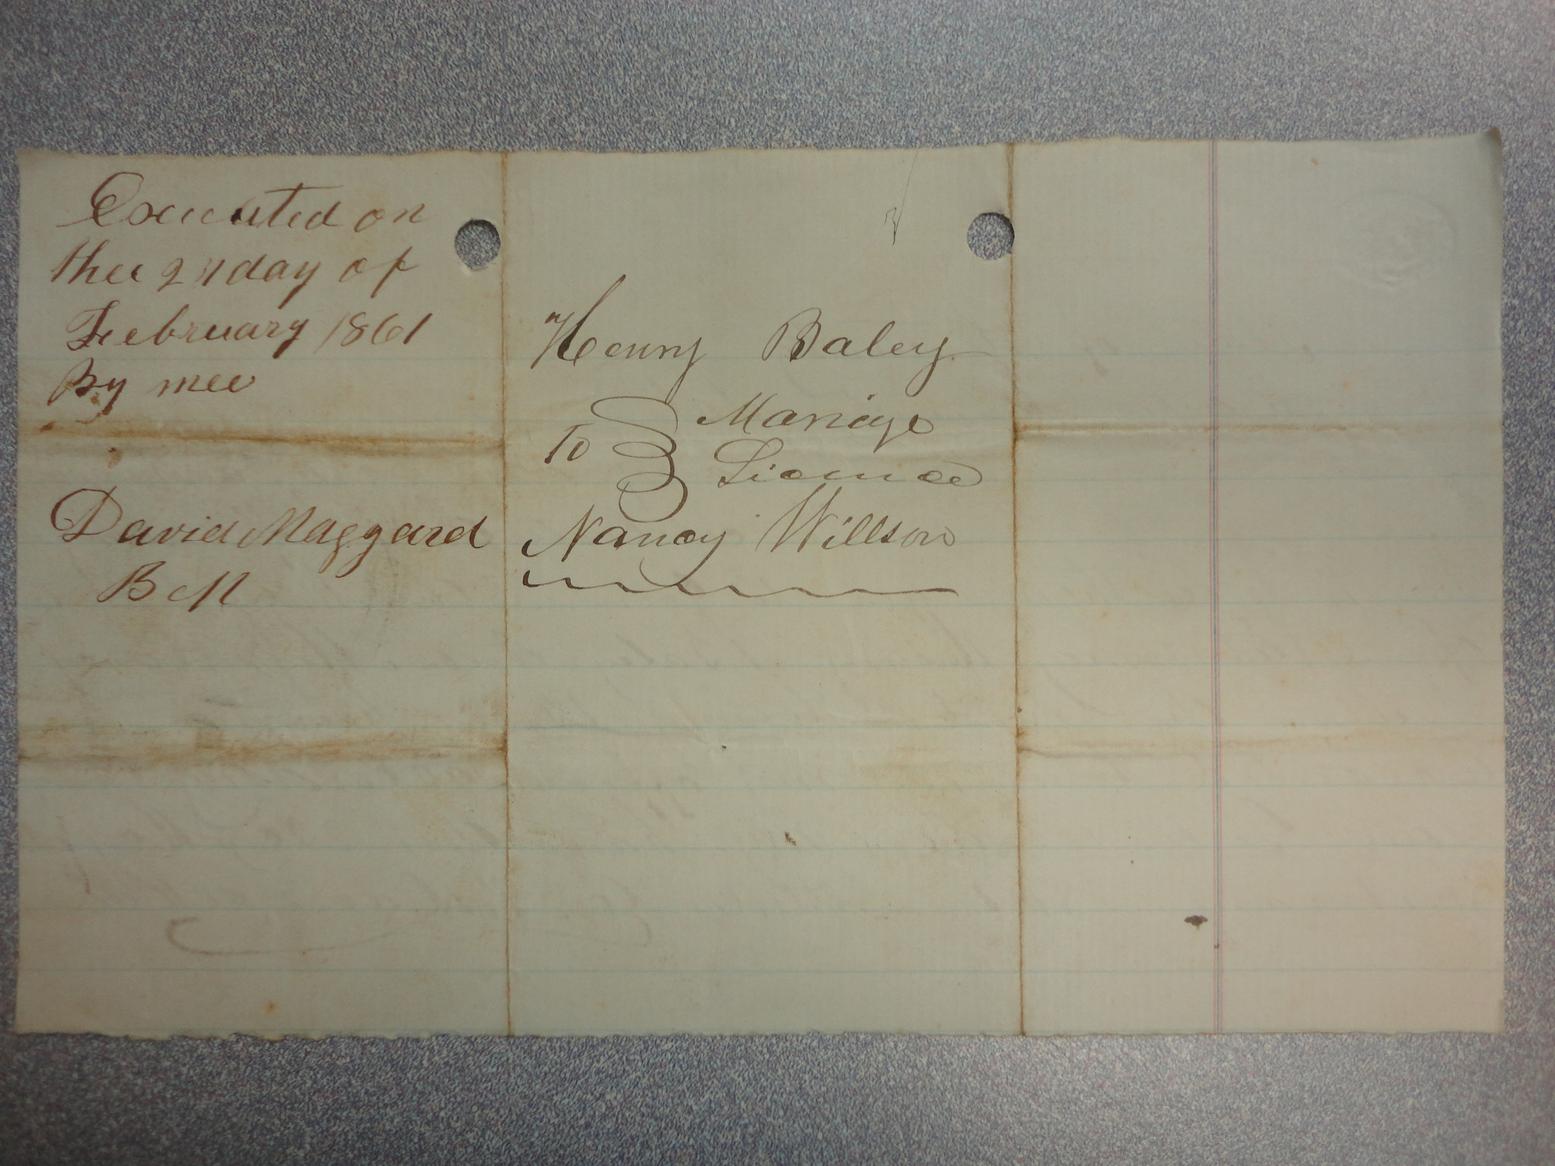 Executed on
thee 24 day of
February 1861
By mee
David Maggard
B M
Henry Baley
To Mariage
Licence
Nancy Willson